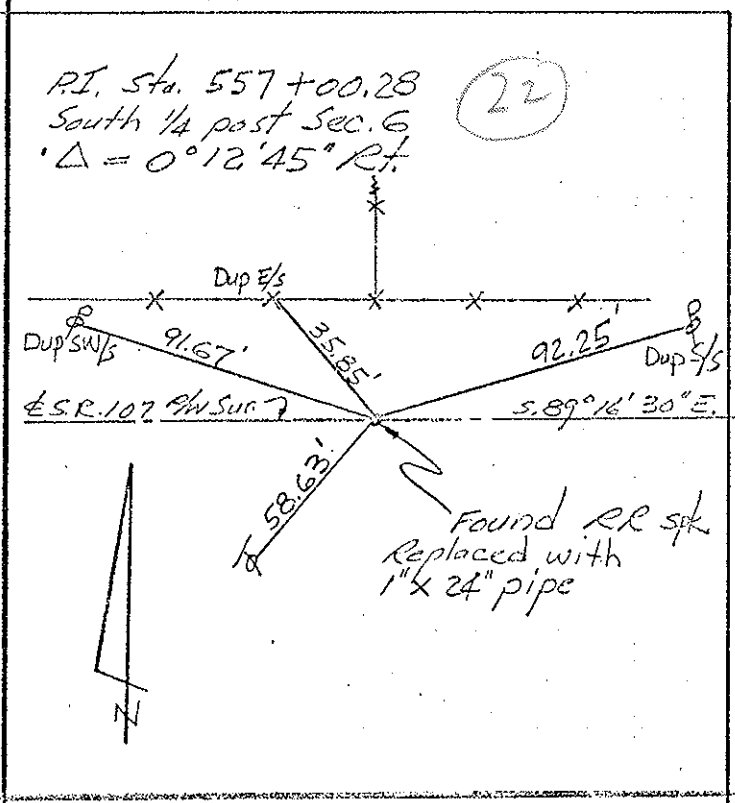 P.I. Sta. 557+00.28
22
South 1/4 post Sec. 6
Δ = 0°12'45" Rt.
Dup E/s
Dup SW/s
91.67'
35.85'
92.25'
Dup S/s
℄ S.R. 107 R/W Sur.
S. 89°16'30" E.
58.63'
Found RR spk
Replaced with
1" x 24" pipe
N